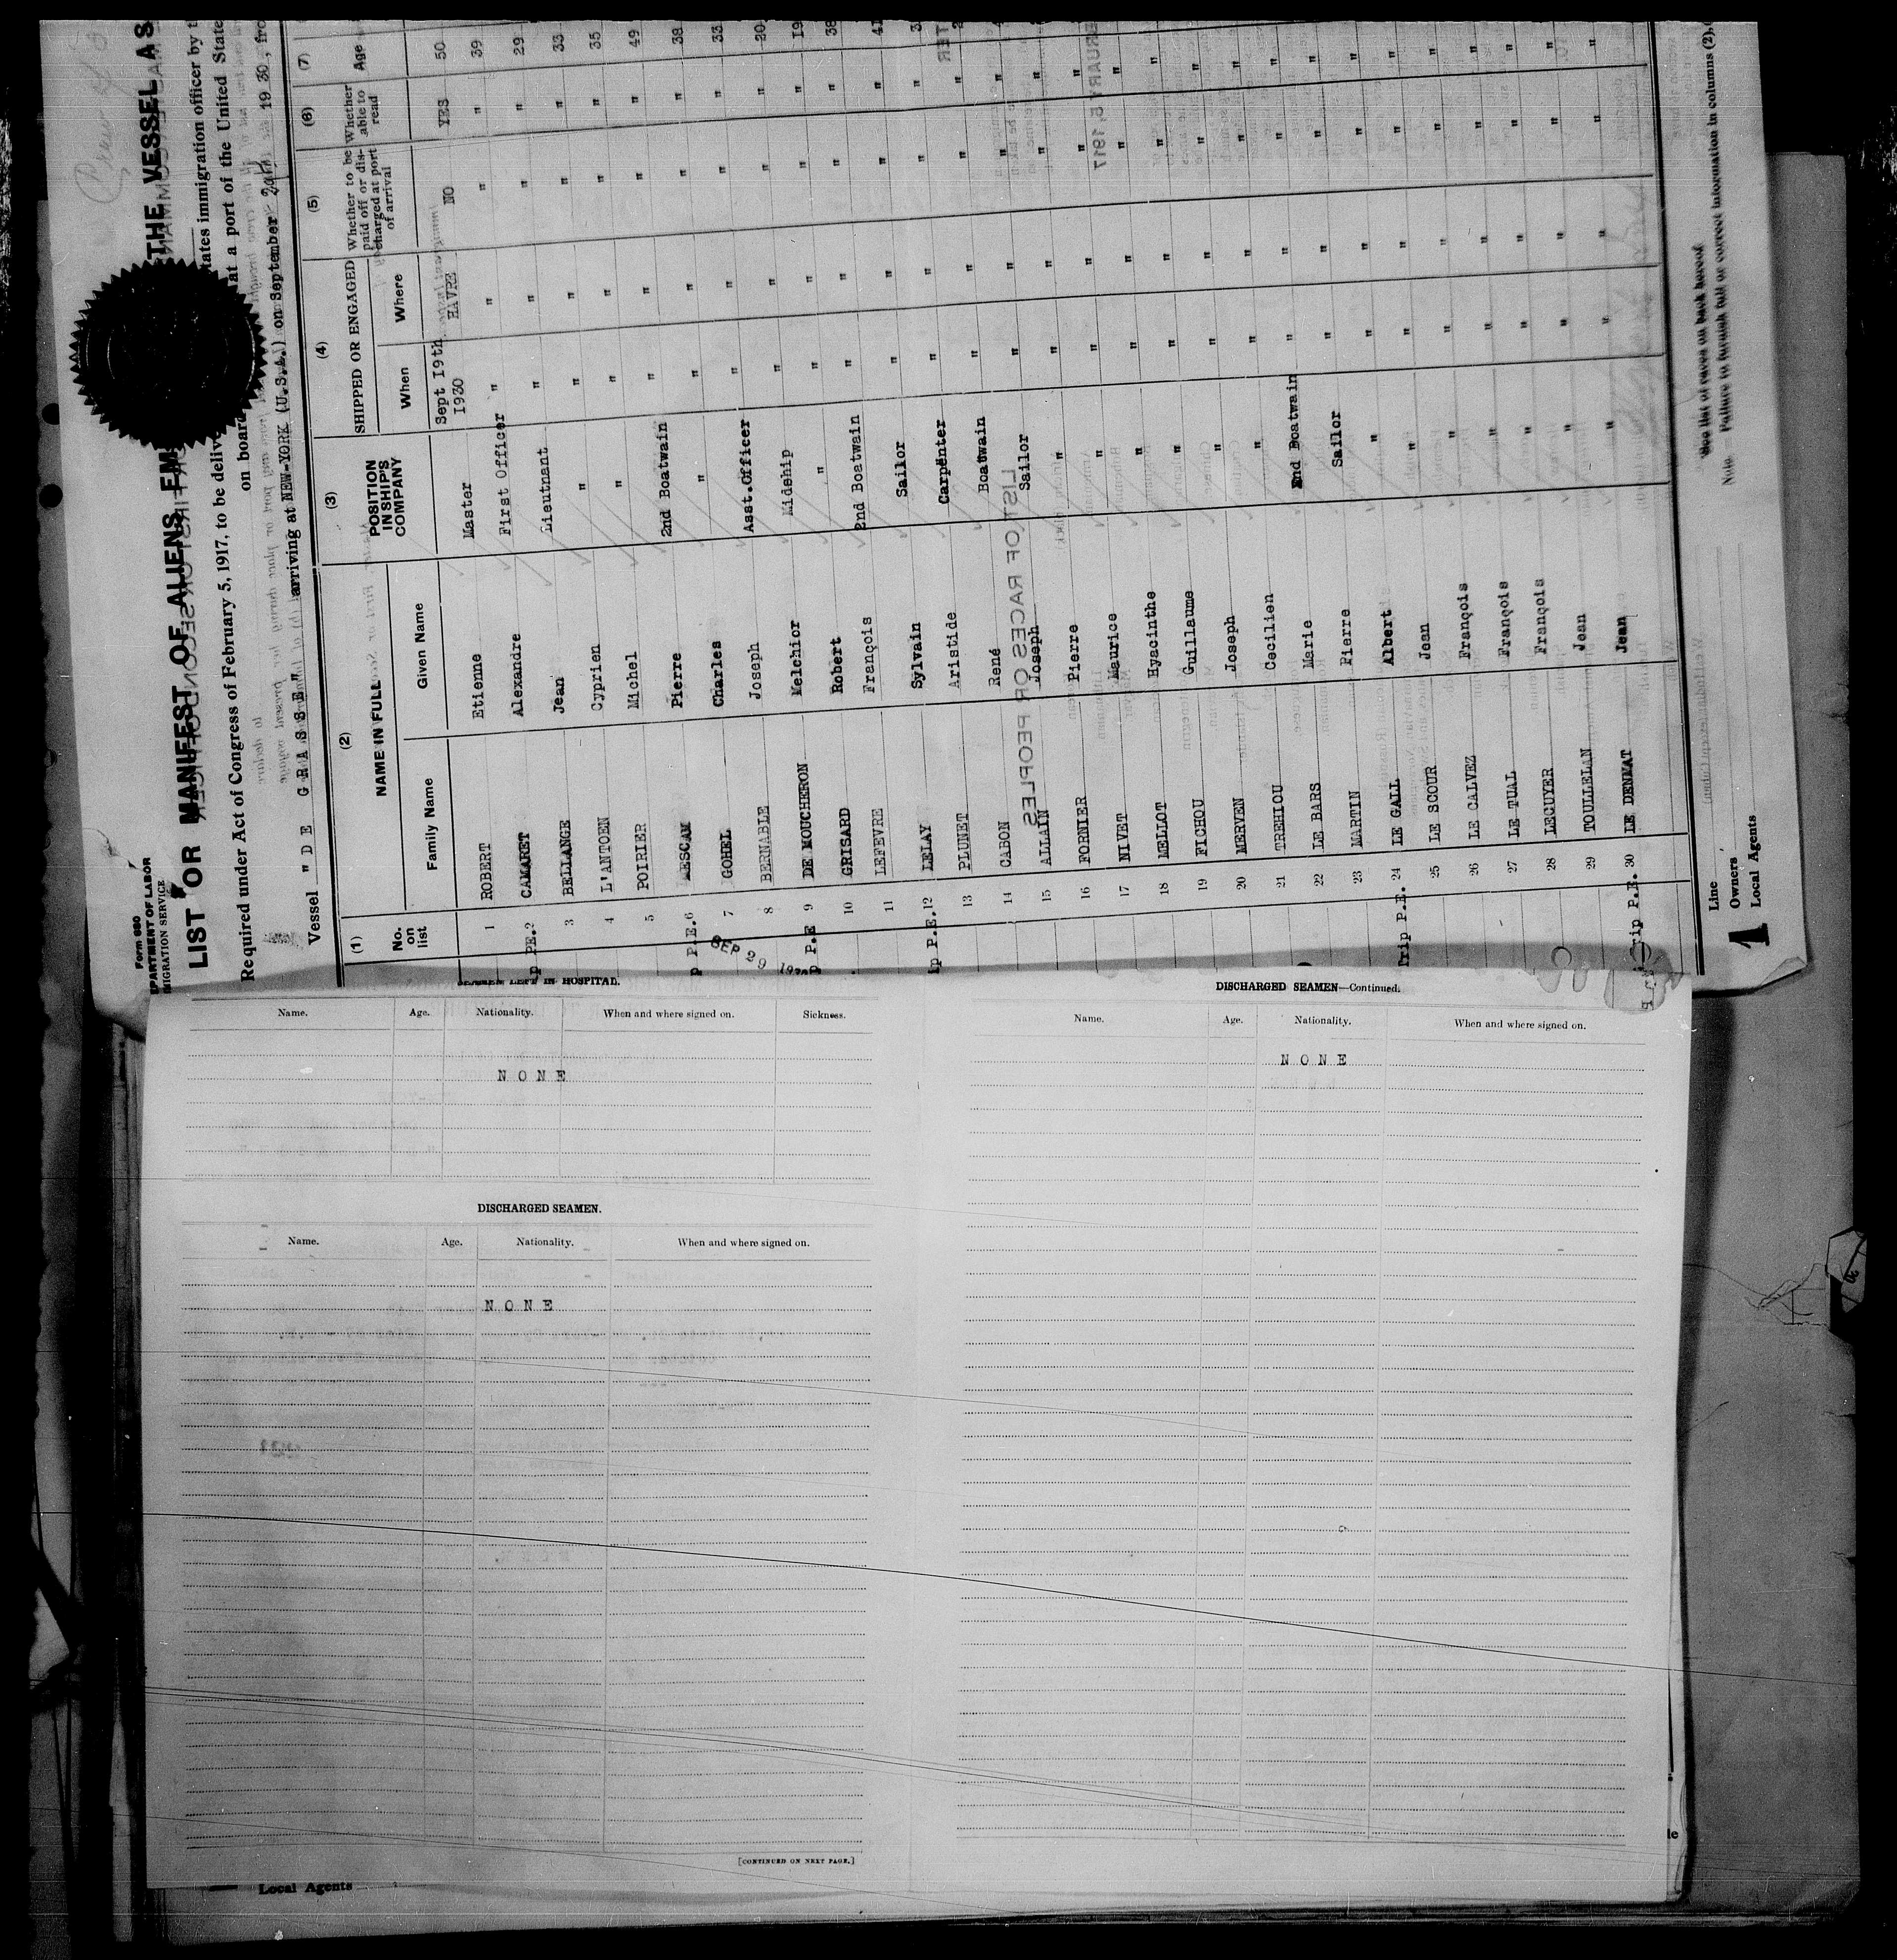 Form 680
DEPARTMENT OF LABOR
IMMIGRATION SERVICE
LIST OR MANIFEST OF ALIENS EM THE VESSEL AS
Required under Act of Congress of February 5, 1917, to be delive tates immigration officer by t
on board at a port of the United State
Vessel "DE GRASSE" arriving at NEW-YORK (U.S.A.) on September 19 30, fro
(1) (2) (3) (4) (5) (6) (7)
No. on list NAME IN FULL POSITION IN SHIP'S COMPANY SHIPPED OR ENGAGED Whether to be paid off or discharged at port of arrival Whether able to read Age
Family Name Given Name When Where
1 ROBERT Etienne Master Sept 19th 1930 HAVRE NO YES 50
2 CAMARET Alexandre First Officer " " " " 39
3 BELLANGE Jean Lieutnant " " " " 29
4 L'ANTOEN Cyprien " " " " " 33
5 POIRIER Michel " " " " " 35
P.E. 6 LESCAM Pierre 2nd Boatwain " " " " 49
7 GOHEL Charles " " " " " 38
8 BERNABLE Joseph Asst.Officer " " " " 33
P.E 9 DE MOUCHERON Melchior Midship " " " " 20
10 GRISARD Robert " " " " " 19
11 LEFEVRE François 2nd Boatwain " " " " 38
P.E. 12 LELAY Sylvain Sailor " " " " 41
13 PLUNET Aristide Carpenter " " " "
14 CABON René Boatwain " " " "
15 ALLAIN Joseph Sailor " " " "
16 FORNIER Pierre " " " " "
17 NIVET Maurice " " " " "
18 MELLOT Hyacinthe " " " " "
19 FICHOU Guillaume " " " " "
20 MERVEN Joseph " " " " "
21 TREHIOU Cecilien " " " " "
22 LE BARS Marie 2nd Boatwain " " " "
23 MARTIN Pierre Sailor " " " "
Trip P.E. 24 LE GALL Albert " " " " "
25 LE SCOUR Jean " " " " "
26 LE CALVEZ François " " " " "
27 LE TUAL François " " " " "
28 LECUYER François " " " " "
29 TOULLELAN Jean " " " " "
Trip P.E. 30 LE DENMAT Jean " " " " "
SEP 29 1930
LIST OF RACES OR PEOPLES
See list of races on back hereof
Note Failure to furnish full or correct information in columns (2),
Line
Owners
Local Agents
1
SEAMEN LEFT IN HOSPITAL.
Name. Age. Nationality. When and where signed on. Sickness.
NONE
DISCHARGED SEAMEN.
Name. Age. Nationality. When and where signed on.
NONE
[CONTINUED ON NEXT PAGE.]
DISCHARGED SEAMEN—Continued.
Name. Age. Nationality. When and where signed on.
NONE
Local Agents